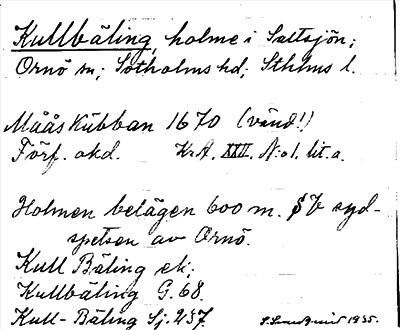 Kullbäling, holme i Saltsjön;
Ornö sn; Sotholms hd; Sthlms l.
Måås Kubban 1670 (vänd!)
Förf. okd. K.A. XXII. N:o 1. lit. a.
Holmen belägen 600 m. SV syd-
spetsen av Ornö.
Kull Bäling ek;
Kullbäling G. 68.
Kull-Bäling Sj. 237.
1935.